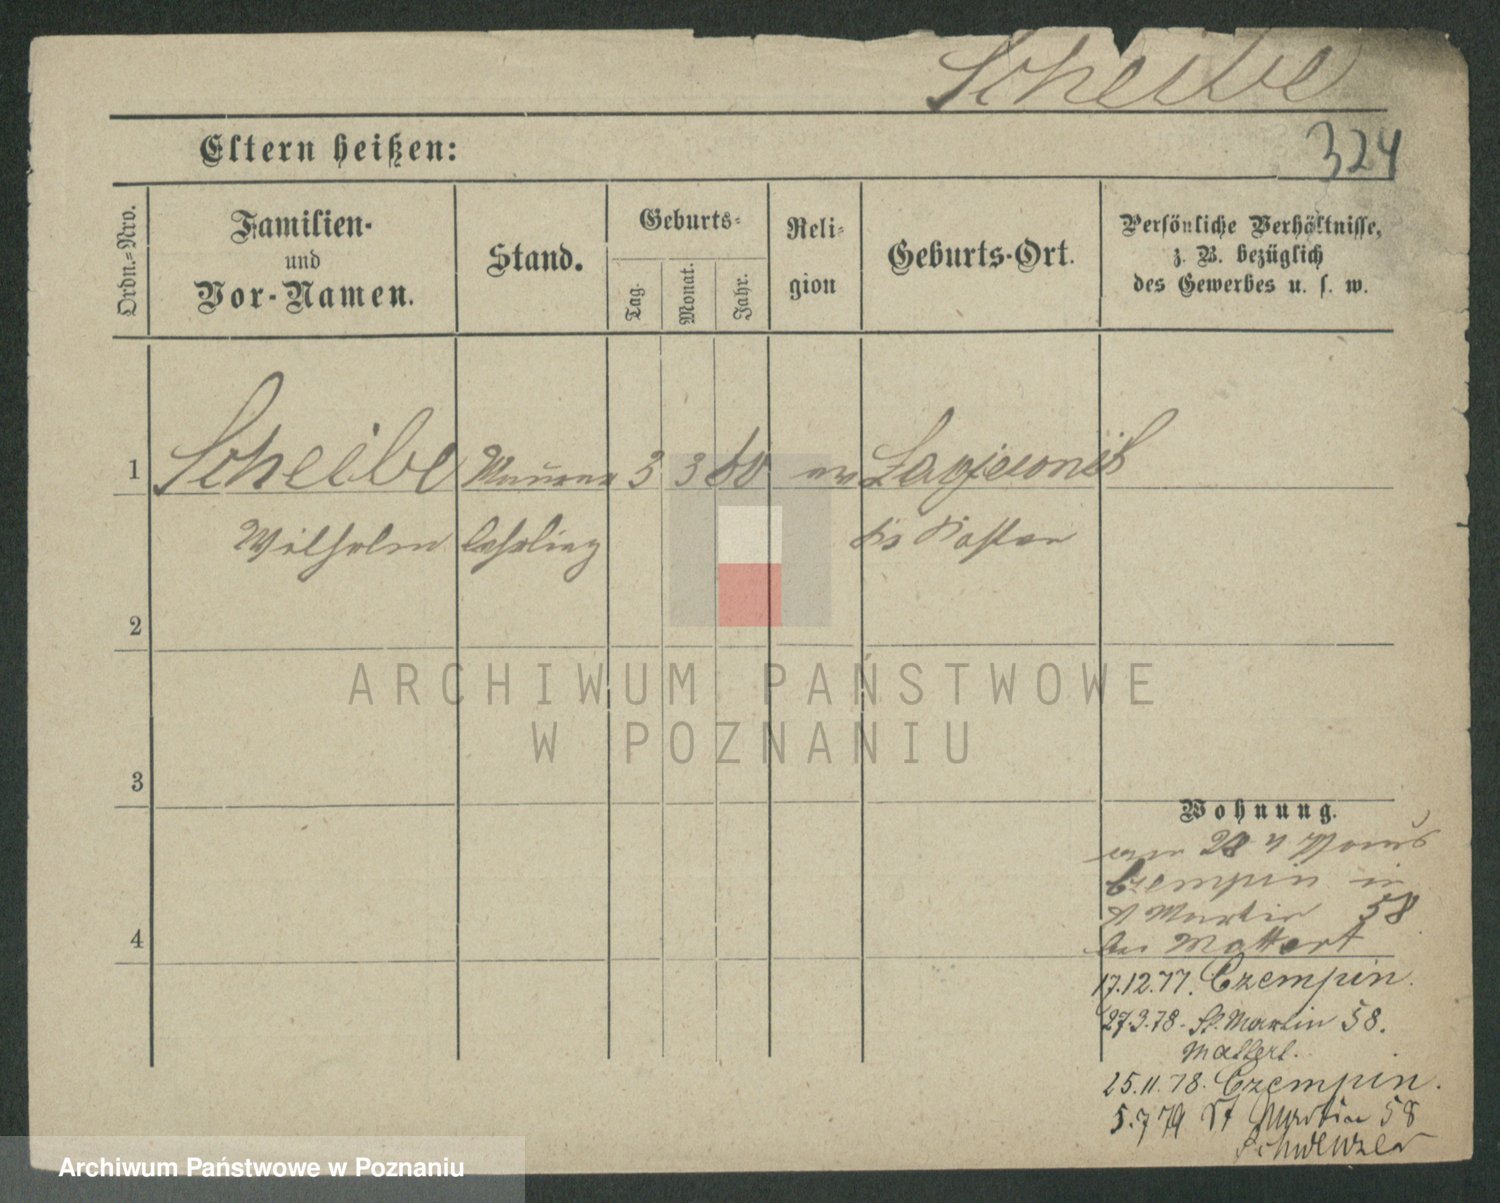 Scheibe
324
Eltern heißen:
Ordn.-Nro.
Familien-
und
Vor-Namen.
Stand.
Geburts-
Tag.
Monat.
Jahr.
Reli-
gion
Geburts-Ort.
Persönliche Verhältnisse,
z. B. bezüglich
des Gewerbes u. s. w.
1 Scheibe Maurer 3 3 60 ev
Wilhelm Lehrling Kr Kosten
2
ARCHIWUM PAŃSTWOWE
W POZNANIU
3
Wohnung.
28 4
Czempin in
St Martin 58
bei Mattert
4
17.12.77. Czempin.
27.3.78. St. Martin 58.
Mattert.
25.11.78. Czempin.
5.7 79 St Martin 58
Archiwum Państwowe w Poznaniu